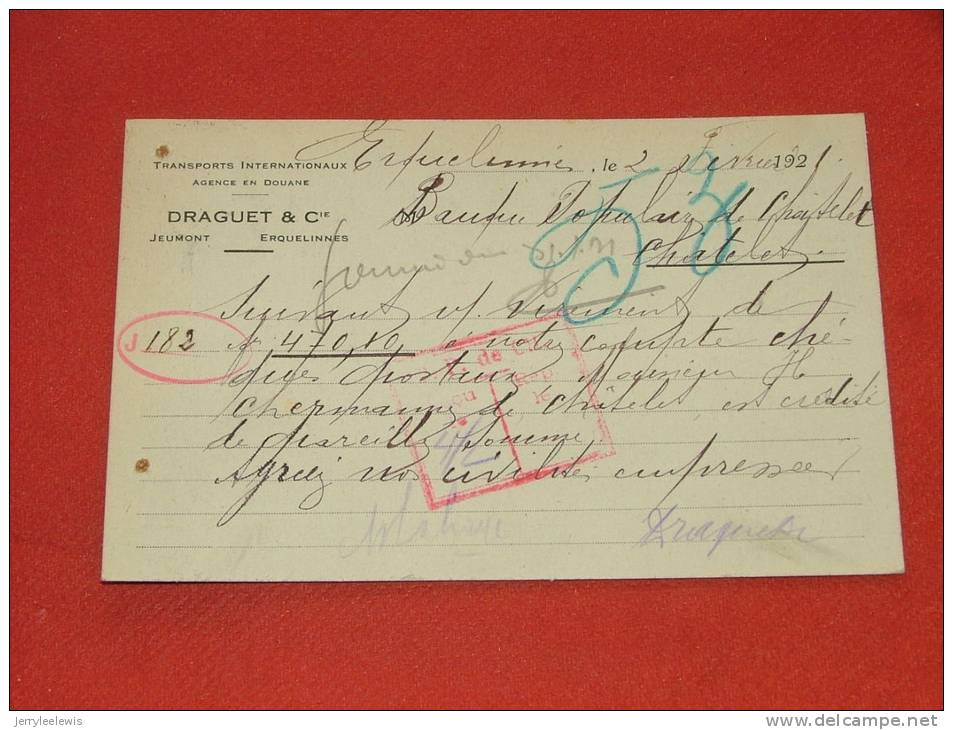 Erquelinnes, le 2 Février 1921.
TRANSPORTS INTERNATIONAUX
AGENCE EN DOUANE
DRAGUET & CIE
JEUMONT ERQUELINNES
Banque Populaire de Châtelet
Châtelet.
Suivant v/. virement de
J 182
470,80, à notre compte ché-
ques postaux, Monsieur H
Chermanne de Châtelet, est crédité
de pareille somme,
Agréez nos civilités empressées
Draguet & Cie
jerryleelewis
www.delcampe.net